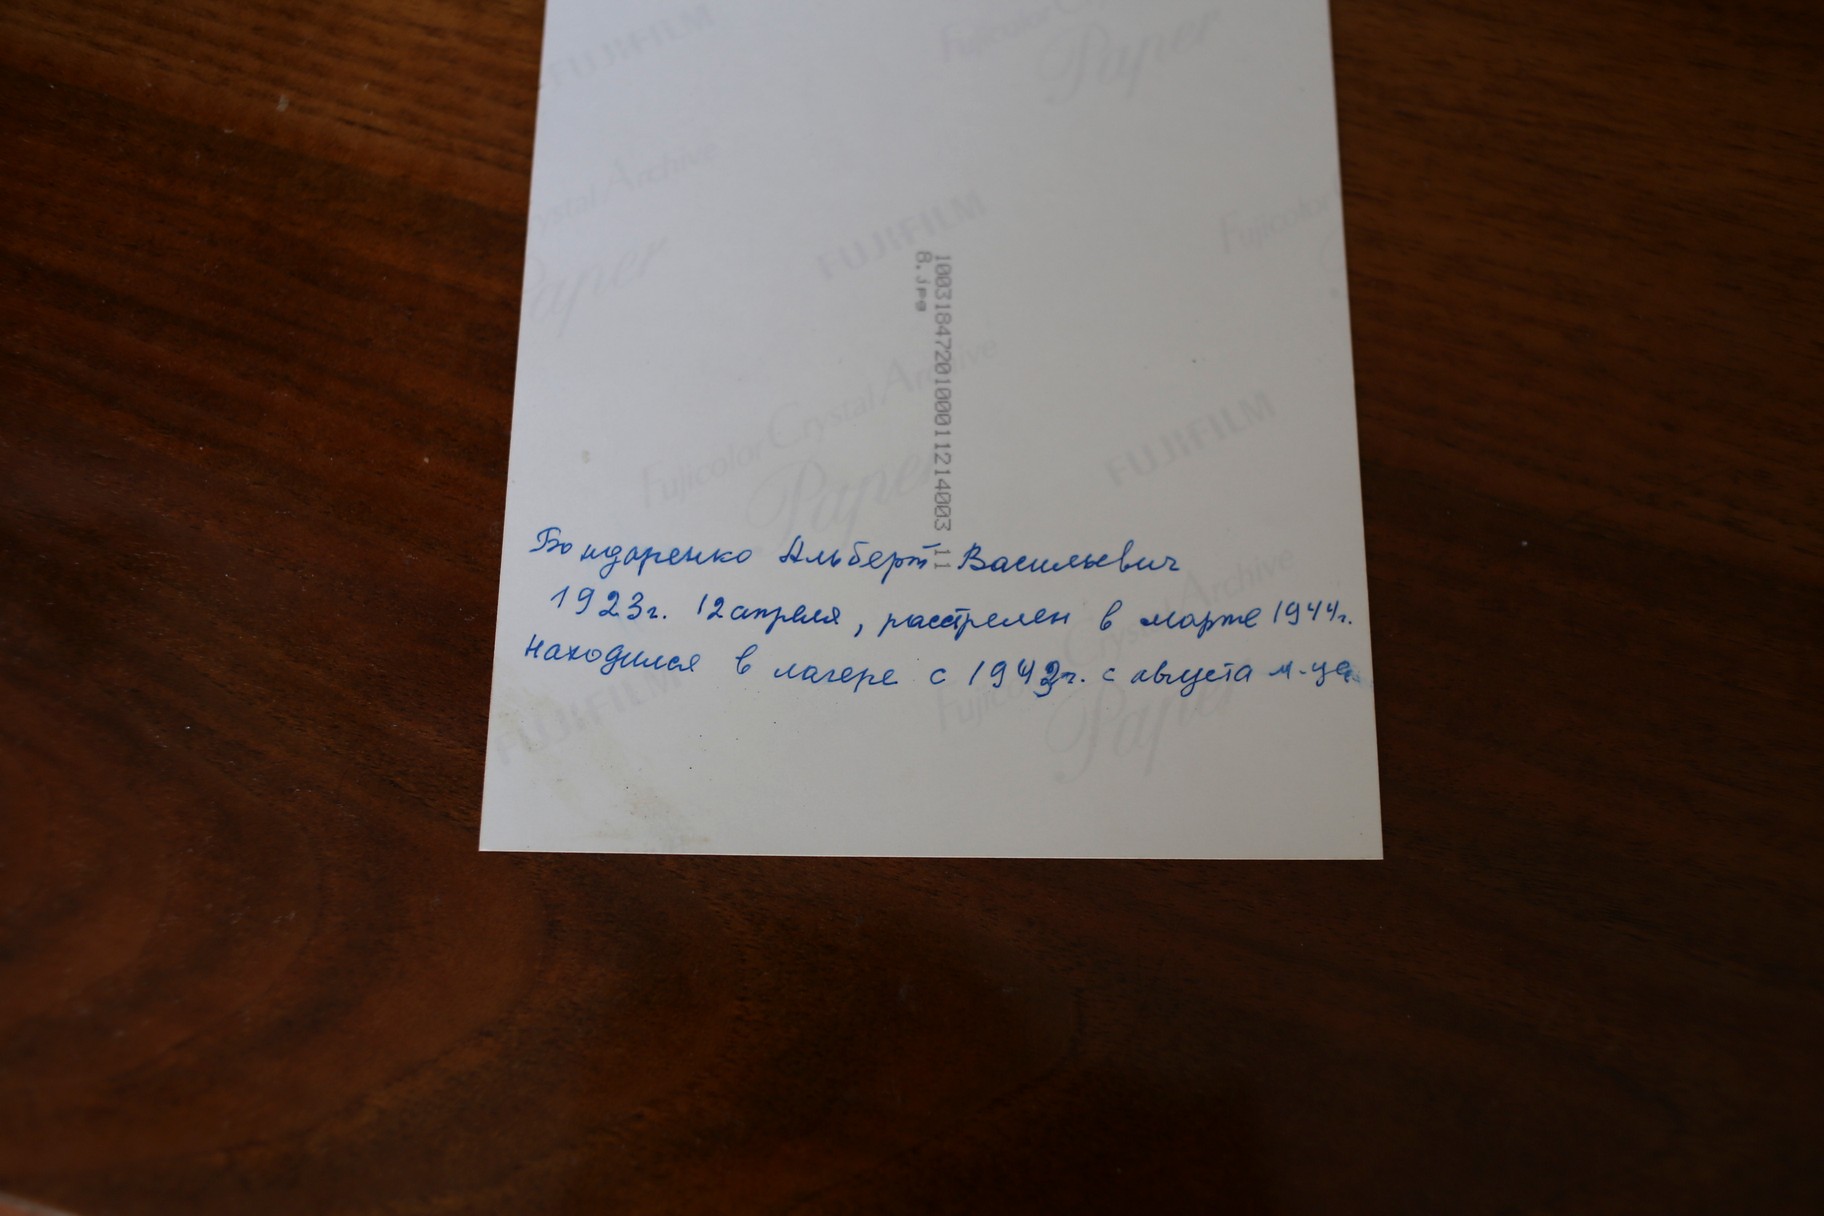 FUJIFILM
Fujicolor
Paper
Crystal Archive
Paper
FUJIFILM
Fujicolor
10031847201000112140003 11
8.jpg
Fujicolor Crystal Archive
Paper
FUJIFILM
Бондаренко Альберт Васильевич
1923г. 12 апреля, расстрелен в марте 1944г.
находился в лагере с 1943г. с августа м-ца
Crystal Archive
FUJIFILM
Paper